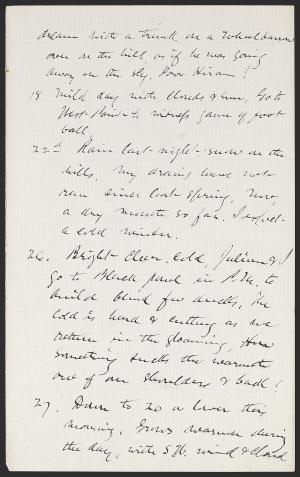 dream with a trunk on a wheelbarrow
over on the hill, as if he was going
away on the sly. Poor Hiram!
18 Mild day with clouds & sun. Go to
West Point to witness game of foot
ball.
22d Rain last night - snow on the
hills. My drains have not
ran since last spring. Nov,
a dry month so far. I expect
a cold winter.
26. Bright - Clear, cold, Julian & I
go to Black pond in P.M. to
build blind for ducks, the
cold is hard & cutting as we
return in the gloaming, How
something sucks the warmth
out of our shoulders & back!
27. Down to 20 or lower this
morning. Grows warmer during
the day, with S.W. wind & cloud